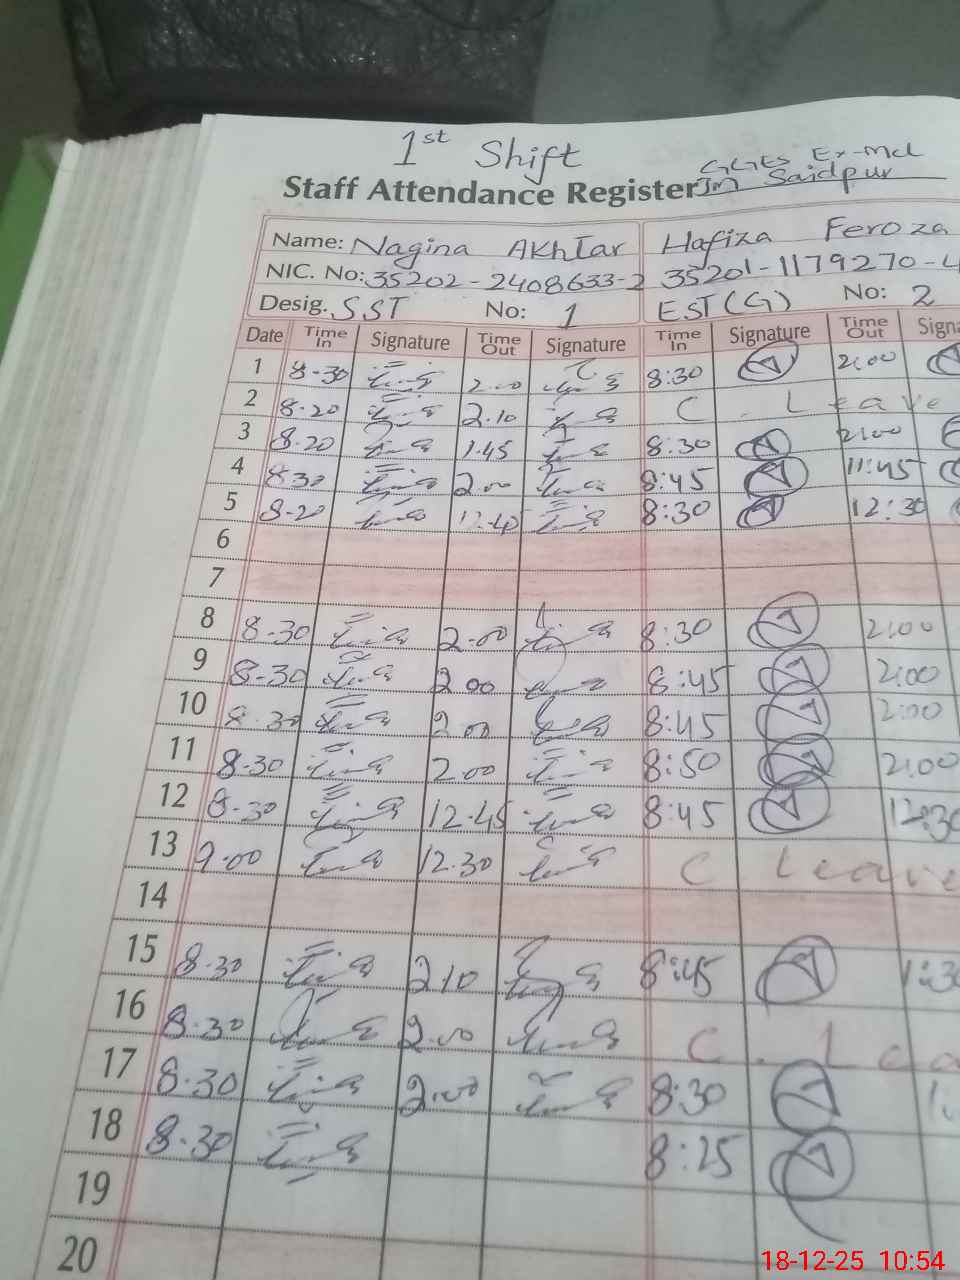 1st Shift
GGES Ex-Mcl
Staff Attendance Register Saidpur
Name: Nagina Akhtar Hafiza Feroza
NIC. No: 35202-2408633-2 35201-1179270-4
Desig. SST No: 1 EST (G) No: 2
Date Time In Signature Time Out Signature Time In Signature Time Out Signa
1 8-30 2.00 8:30 2:00
2 8-20 2.10 C. Leave
3 8-20 1.45 8:30 2:00
4 8-30 2.00 8:45 11:45
5 8-20 12-45 8:30 12:30
6
7
8 8-30 2.00 8:30 2:00
9 8-30 2 00 8:45 2:00
10 8.30 2.00 8:45 2:00
11 8-30 2.00 8:50 2:00
12 8-30 12.45 8:45 12:30
13 9.00 12.30 C Leave
14
15 8.30 2.10 8:45 1:30
16 8.30 2.00 C. Lea
17 8.30 2.00 8:30
18 8.30 8:25
19
20
18-12-25 10:54